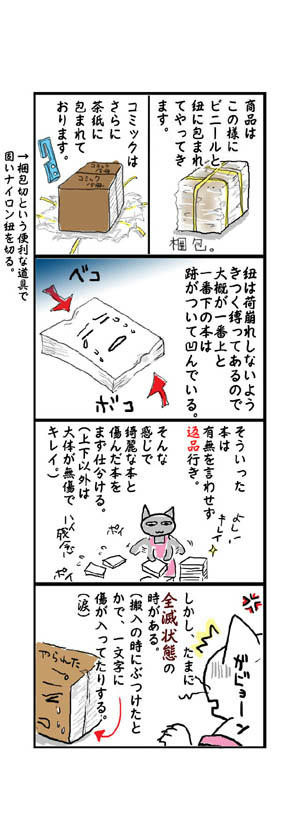 商品は
この様に
ビニールと
紐に包まれ
てやってき
ます。
梱包。
コミックは
さらに
茶紙に
包まれて
おります。
コミック
コミック
→梱包切という便利な道具で
固いナイロン紐を切る。
紐は荷崩れしないよう
きつく縛ってあるので
大概が一番上と
一番下の本は
跡がついて凹んでいる。
ベコ
ボコ
そういった
本は
有無を言わせず
返品行き。
よし
キレイ
そんな
感じで
綺麗な本と
傷んだ本を
まず仕分ける。
(上下以外は
大体が無傷で
キレイ。)
ポイ
ポイ
しかし、たまに
全滅状態の
時がある。
(搬入の時にぶつけたと
かで、一文字に
傷が入ってたりする。
(涙)
がびョーン
やられた